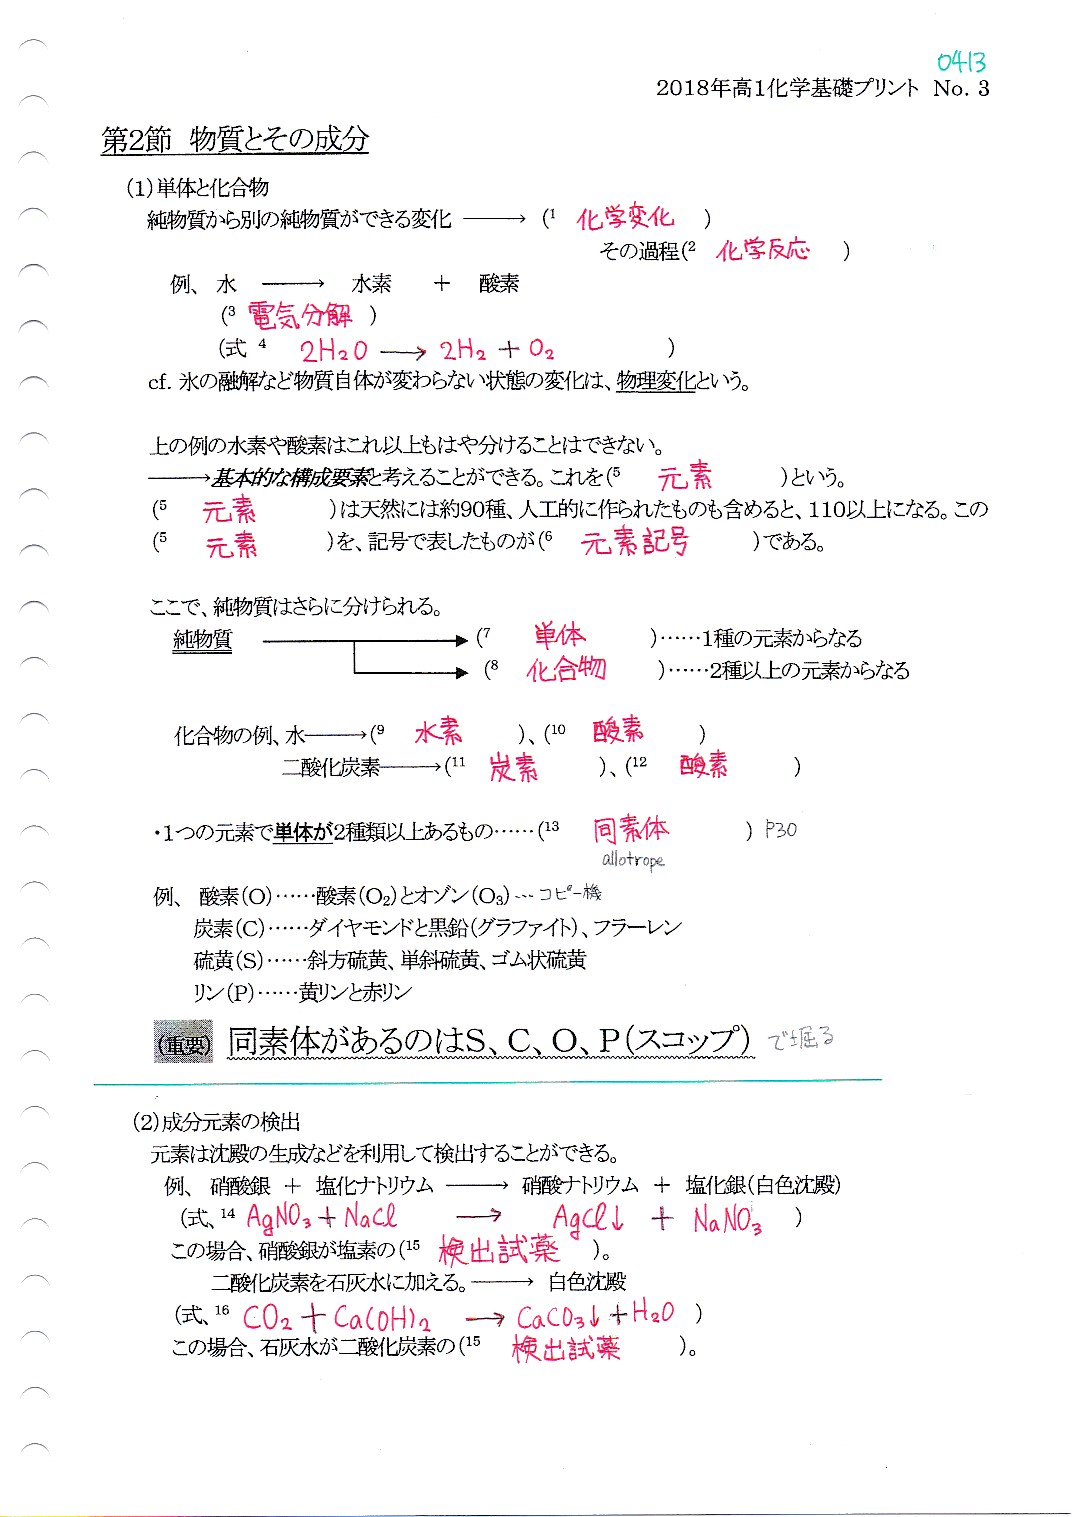 0413
2018年高1化学基礎プリント No. 3
第2節 物質とその成分
(1)単体と化合物
純物質から別の純物質ができる変化 ――→ (1 化学変化 )
その過程(2 化学反応 )
例、 水 ――→ 水素 + 酸素
(3 電気分解 )
(式 4 2H2O → 2H2 + O2 )
cf. 氷の融解など物質自体が変わらない状態の変化は、物理変化という。
上の例の水素や酸素はこれ以上もはや分けることはできない。
――→基本的な構成要素と考えることができる。これを(5 元素 )という。
(5 元素 )は天然には約90種、人工的に作られたものも含めると、110以上になる。この
(5 元素 )を、記号で表したものが(6 元素記号 )である。
ここで、純物質はさらに分けられる。
純物質 ――→ (7 単体 )……1種の元素からなる
(8 化合物 )……2種以上の元素からなる
化合物の例、水――→(9 水素 )、(10 酸素 )
二酸化炭素――→(11 炭素 )、(12 酸素 )
・1つの元素で単体が2種類以上あるもの……(13 同素体 ) P30
allotrope
例、 酸素(O)……酸素(O2)とオゾン(O3) --- コピー機
炭素(C)……ダイヤモンドと黒鉛(グラファイト)、フラーレン
硫黄(S)……斜方硫黄、単斜硫黄、ゴム状硫黄
リン(P)……黄リンと赤リン
(重要) 同素体があるのはS、C、O、P(スコップ) で掘る
(2)成分元素の検出
元素は沈殿の生成などを利用して検出することができる。
例、 硝酸銀 + 塩化ナトリウム ――→ 硝酸ナトリウム + 塩化銀(白色沈殿)
(式、14 AgNO3 + NaCl → AgCl↓ + NaNO3 )
この場合、硝酸銀が塩素の(15 検出試薬 )。
二酸化炭素を石灰水に加える。――→ 白色沈殿
(式、16 CO2 + Ca(OH)2 → CaCO3↓ + H2O )
この場合、石灰水が二酸化炭素の(15 検出試薬 )。